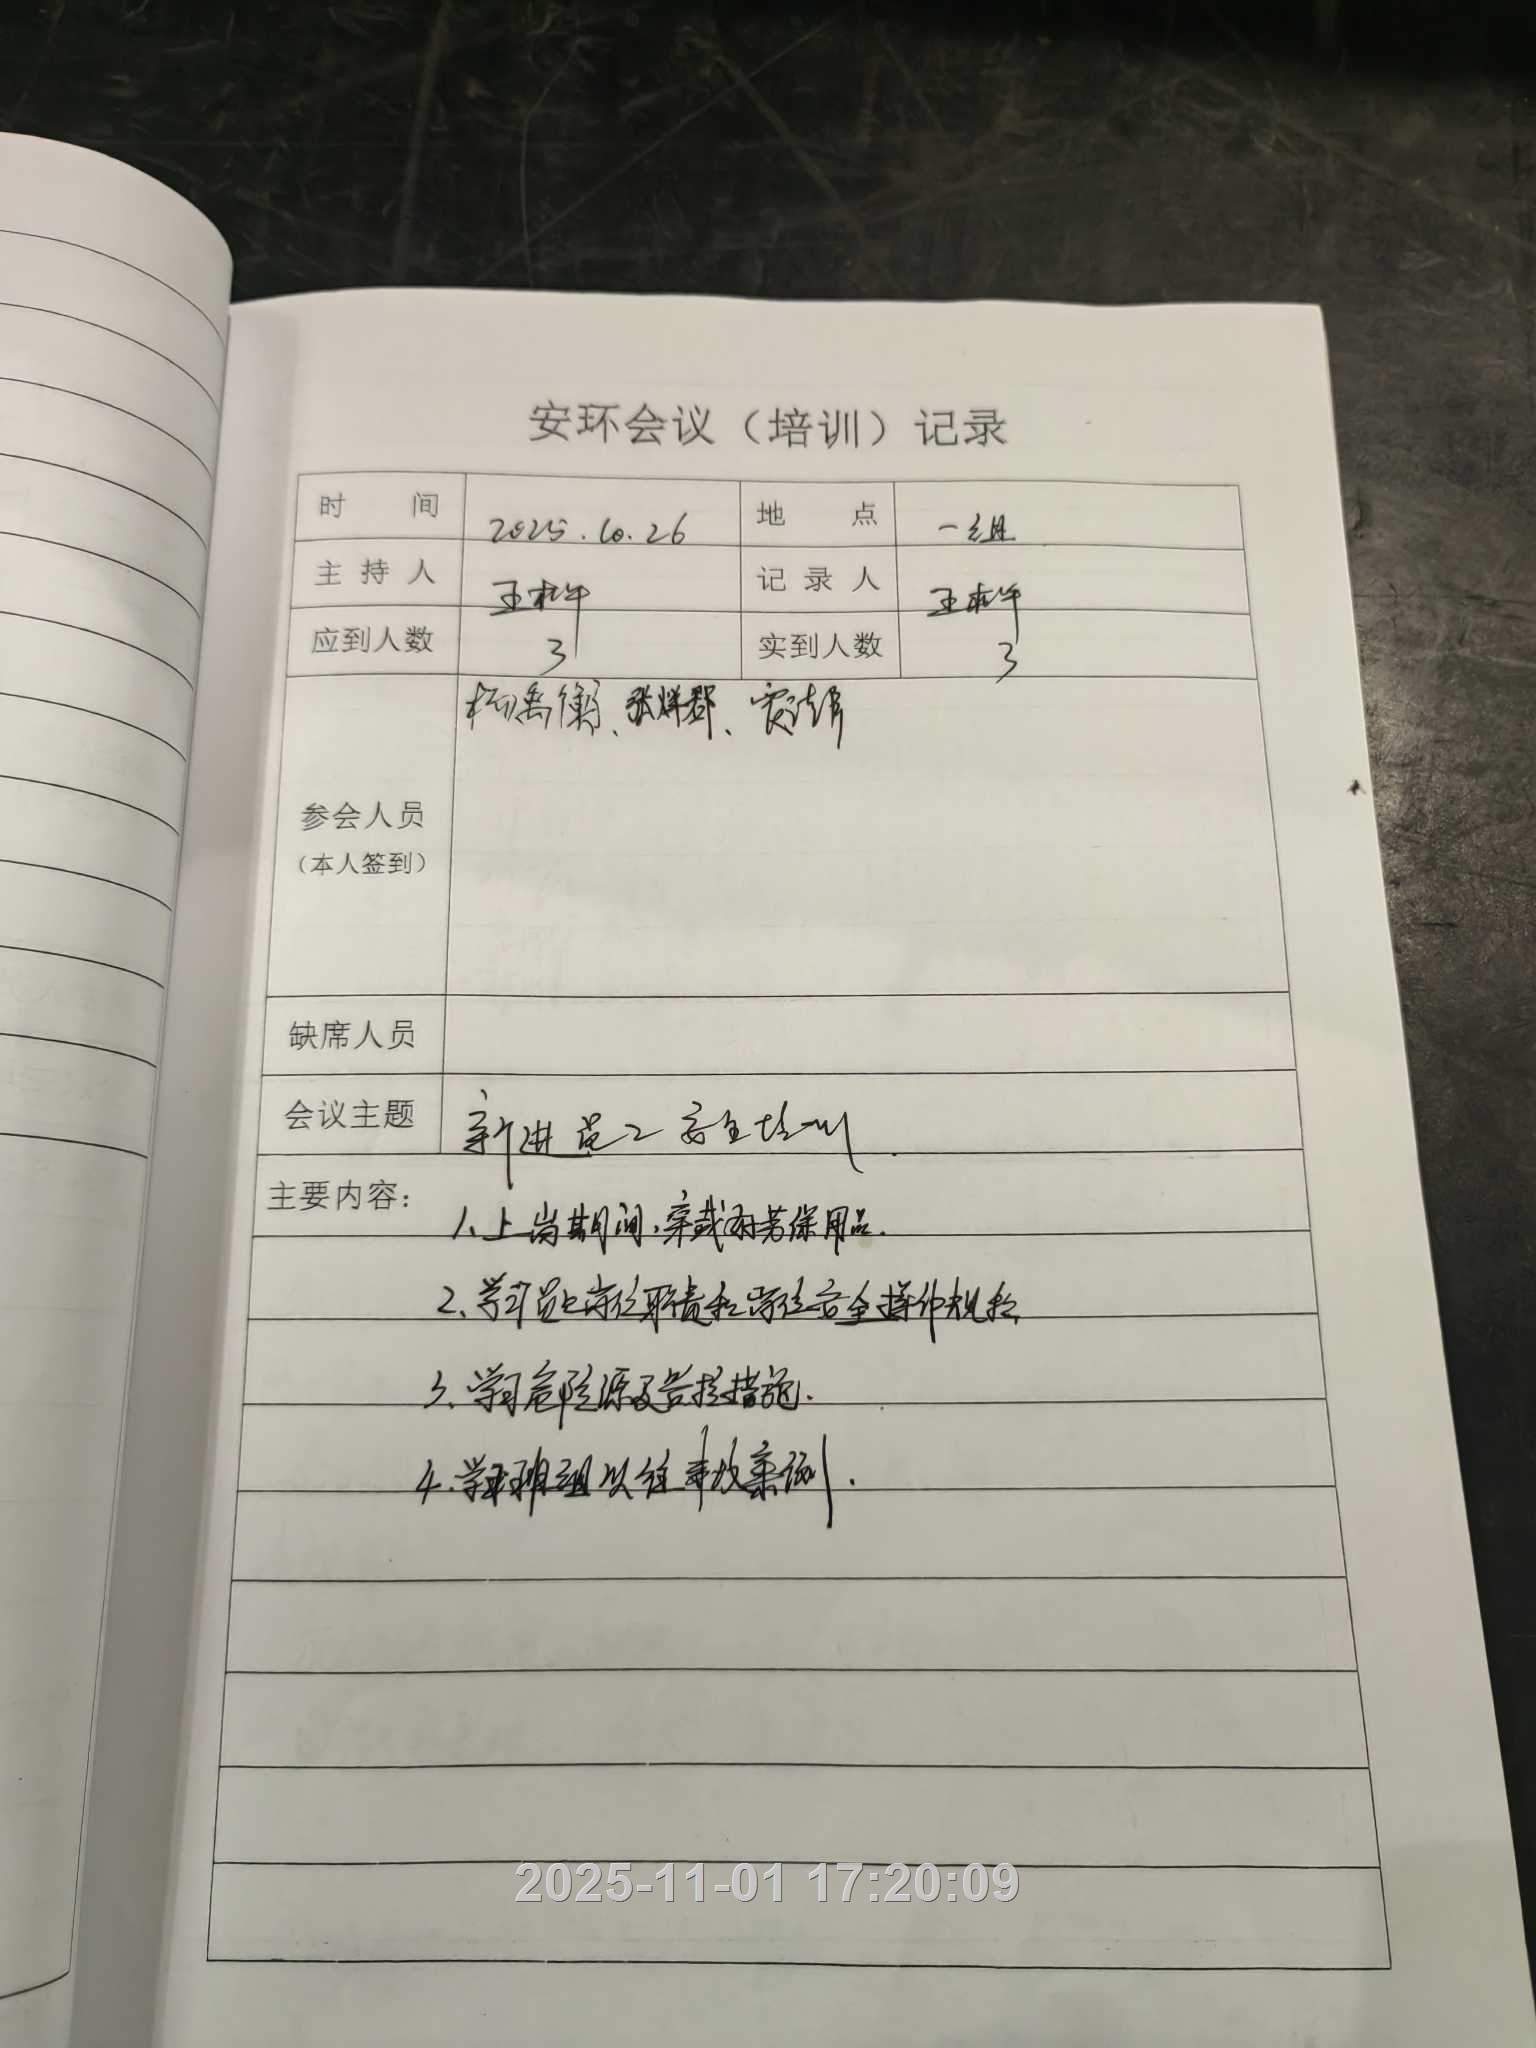 安环会议（培训）记录
时 间 2025.10.26 地 点 一组
主 持 人 王 记 录 人 王
应到人数 3 实到人数 3
参会人员 张
（本人签到）
缺席人员
会议主题 新进员工安全培训.
主要内容：
1、上岗期间,穿戴好劳保用品.
2、学习员工岗位职责和岗位安全操作规程
3、学习危险源及管控措施.
4.学习班组以往事故案例.
2025-11-01 17:20:09